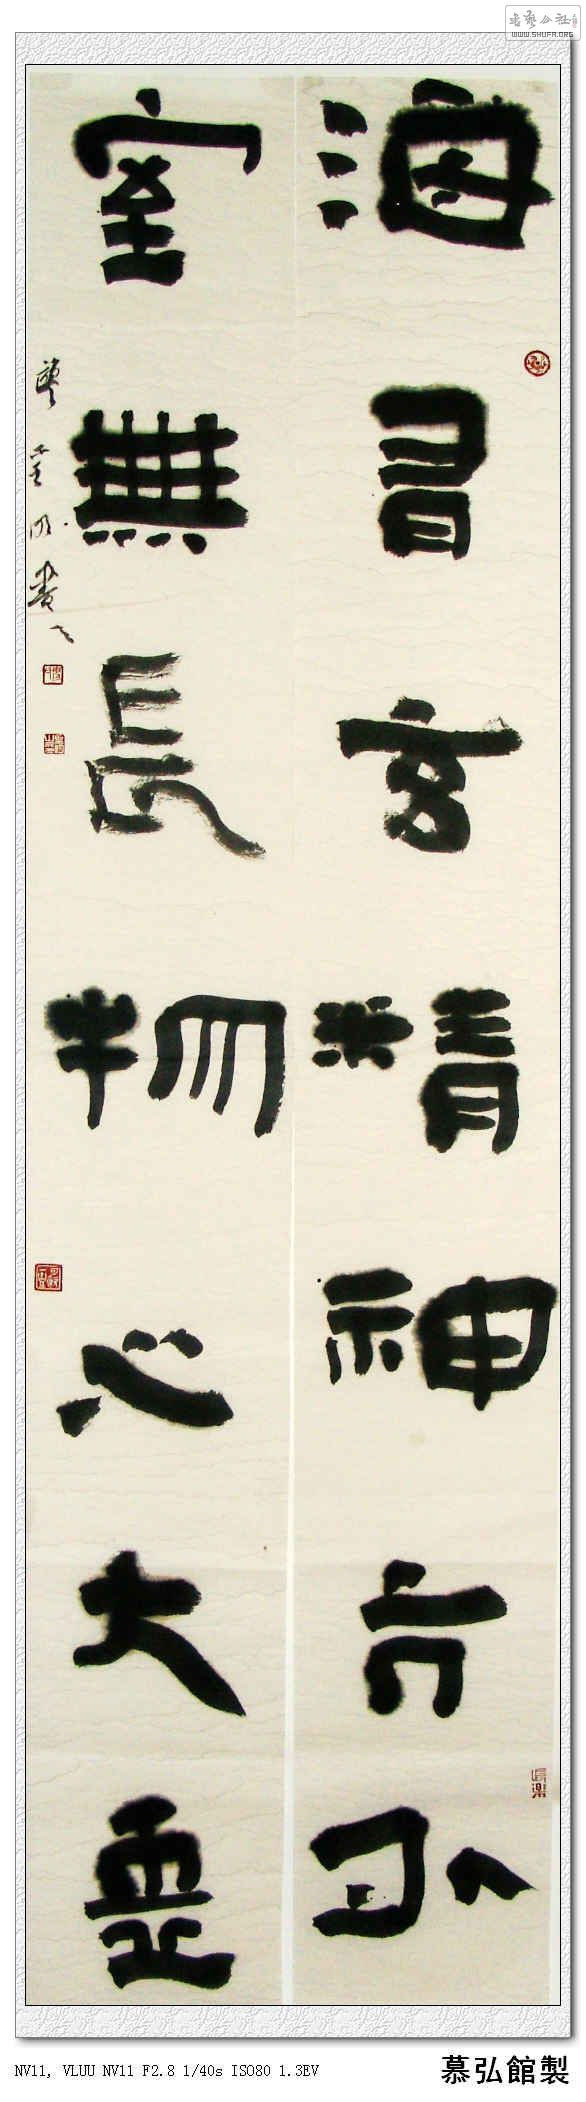 書藝公社
WWW.SHUFA.ORG
海有玄精神亢弘
室無長物心大
書
NV11, VLUU NV11 F2.8 1/40s ISO80 1.3EV
慕弘館製